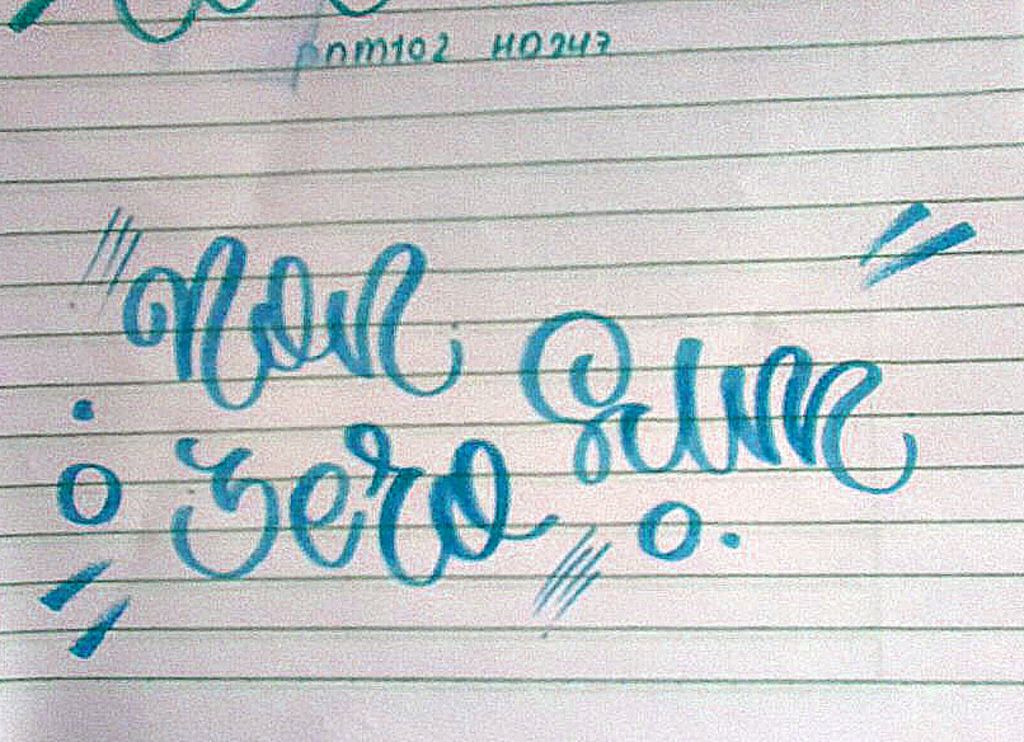 pnm102 HO247
Non
Sum
zero